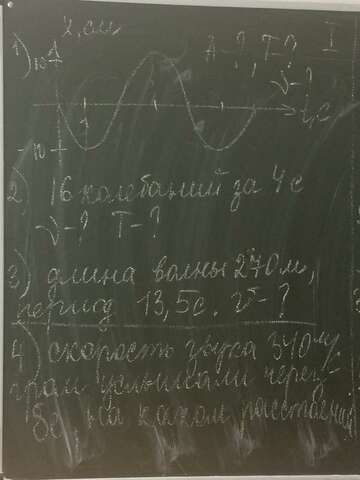 I
x, см
1) 10
A-?, T-?
ν-?
t, c
-10
2) 16 колебаний за 4 с
ν-? T-?
3) длина волны 270 м,
период 13,5 с. υ-?
4) скорость звука 340 м/с
гром услышали через
на каком расстоянии